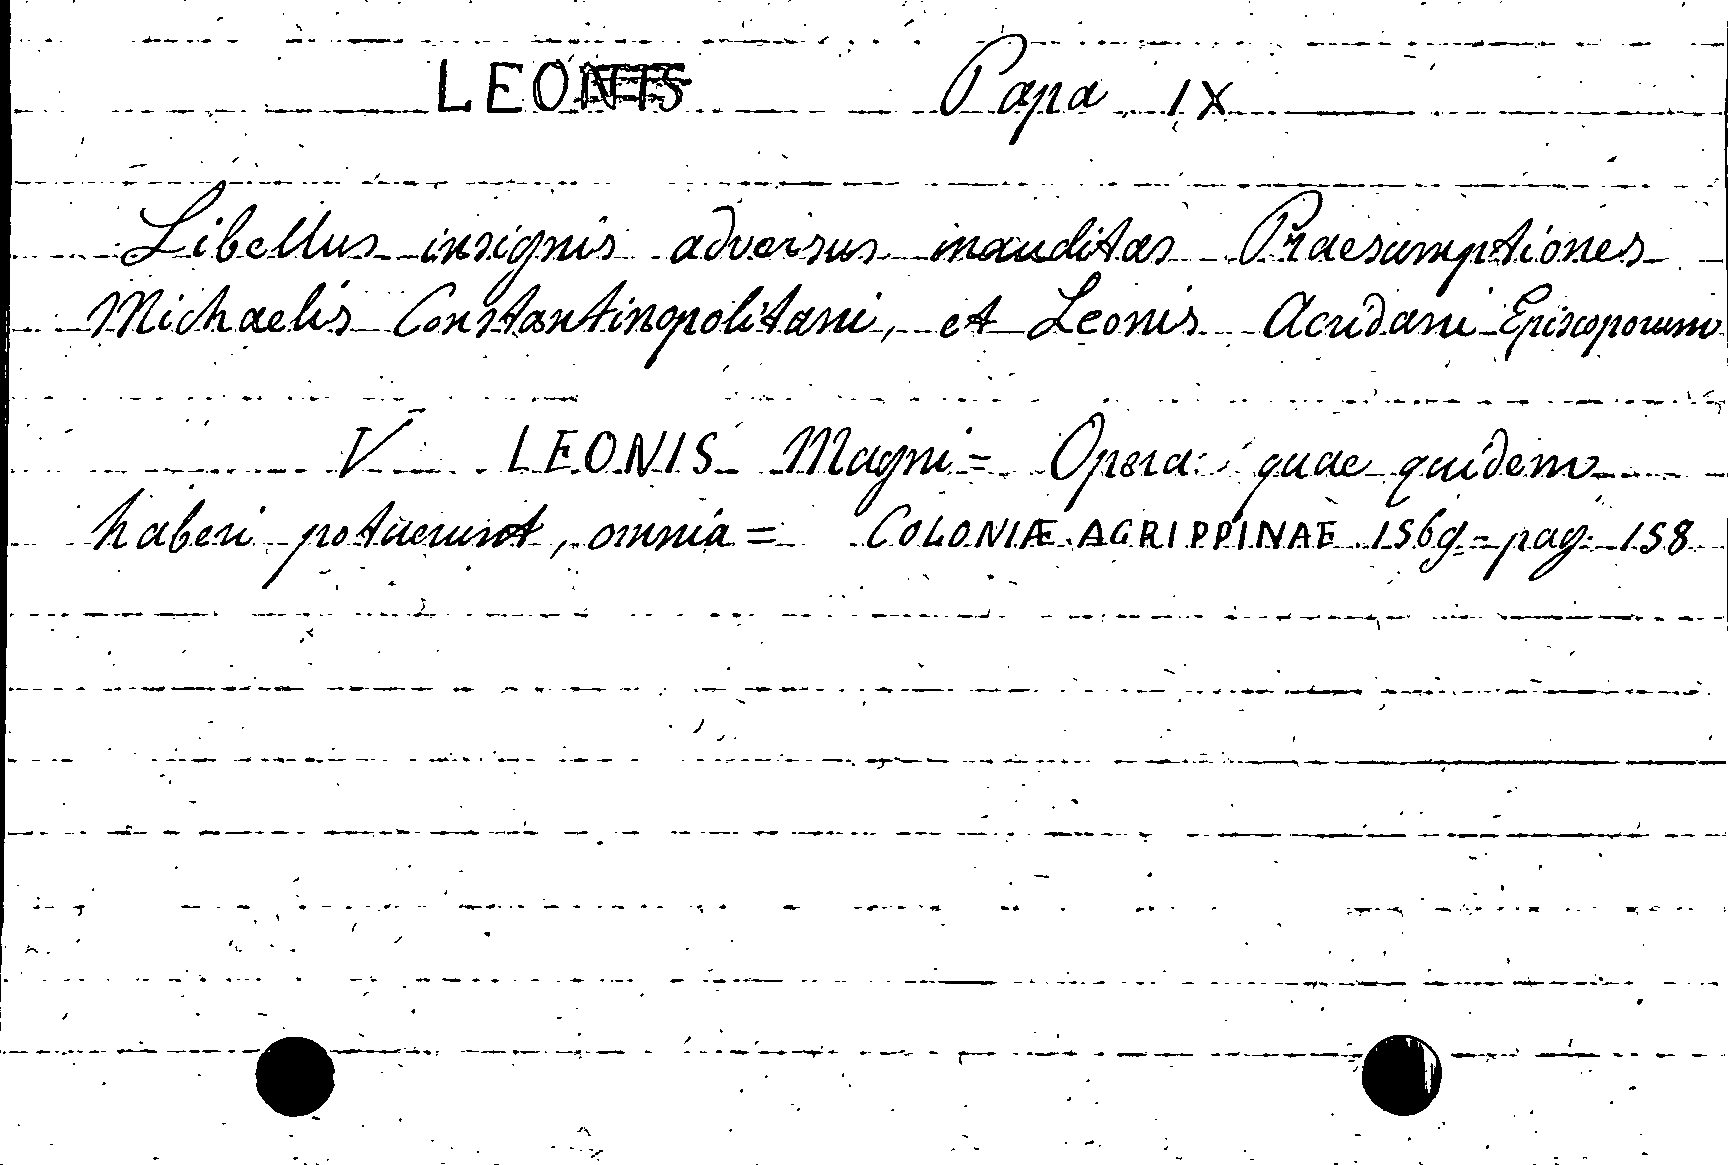 LEONIS Papa IX
Libellus insignis adversus inauditas Praesumptiones
Michaelis Constantinopolitani, et Leonis Acridani Episcoporum
V LEONIS Magni = Opera: quae quidem
haberi potuerunt, omnia = COLONIÆ AGRIPPINAE 1569 = pag. 158